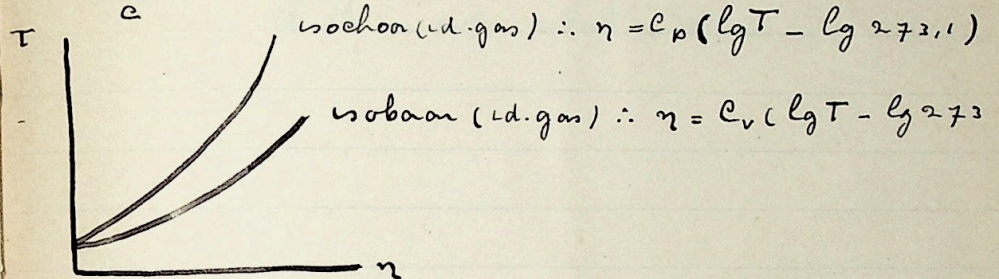 c
T isochoor (id. gas) ∴ η = Cp (lg T – lg 273,1)
isobaar (id. gas) ∴ η = Cv ( lg T – lg 273
η